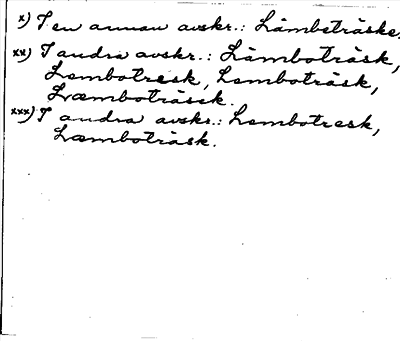 x) I en annan avskr.: Låmbeträske.
xx) I andra avskr.: Låmboträsk,
Lambotresk, Lamboträsk,
Læmboträsck.
xxx) I andra avskr.: Lambotresk,
Læmboträsk.